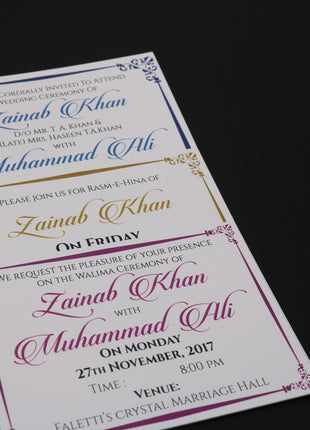 Cordially Invited To Attend
Wedding Ceremony Of
Zainab Khan
D/o Mr. T. A. Khan &
(Late) Mrs. Haseen T.A.Khan
with
Muhammad Ali
Please join us for Rasm-e-Hina of
Zainab Khan
On Friday
We request the pleasure of your presence
on the Walima Ceremony of
Zainab Khan
with
Muhammad Ali
On Monday
27th November, 2017
Time : 8:00 pm
Venue:
Faletti's Crystal Marriage Hall